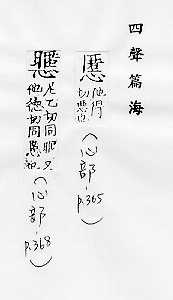 四聲篇海
他得
切悪也
(心部-
p.365)
尼乙切同昵又
他德切同
(心部-
p.368)